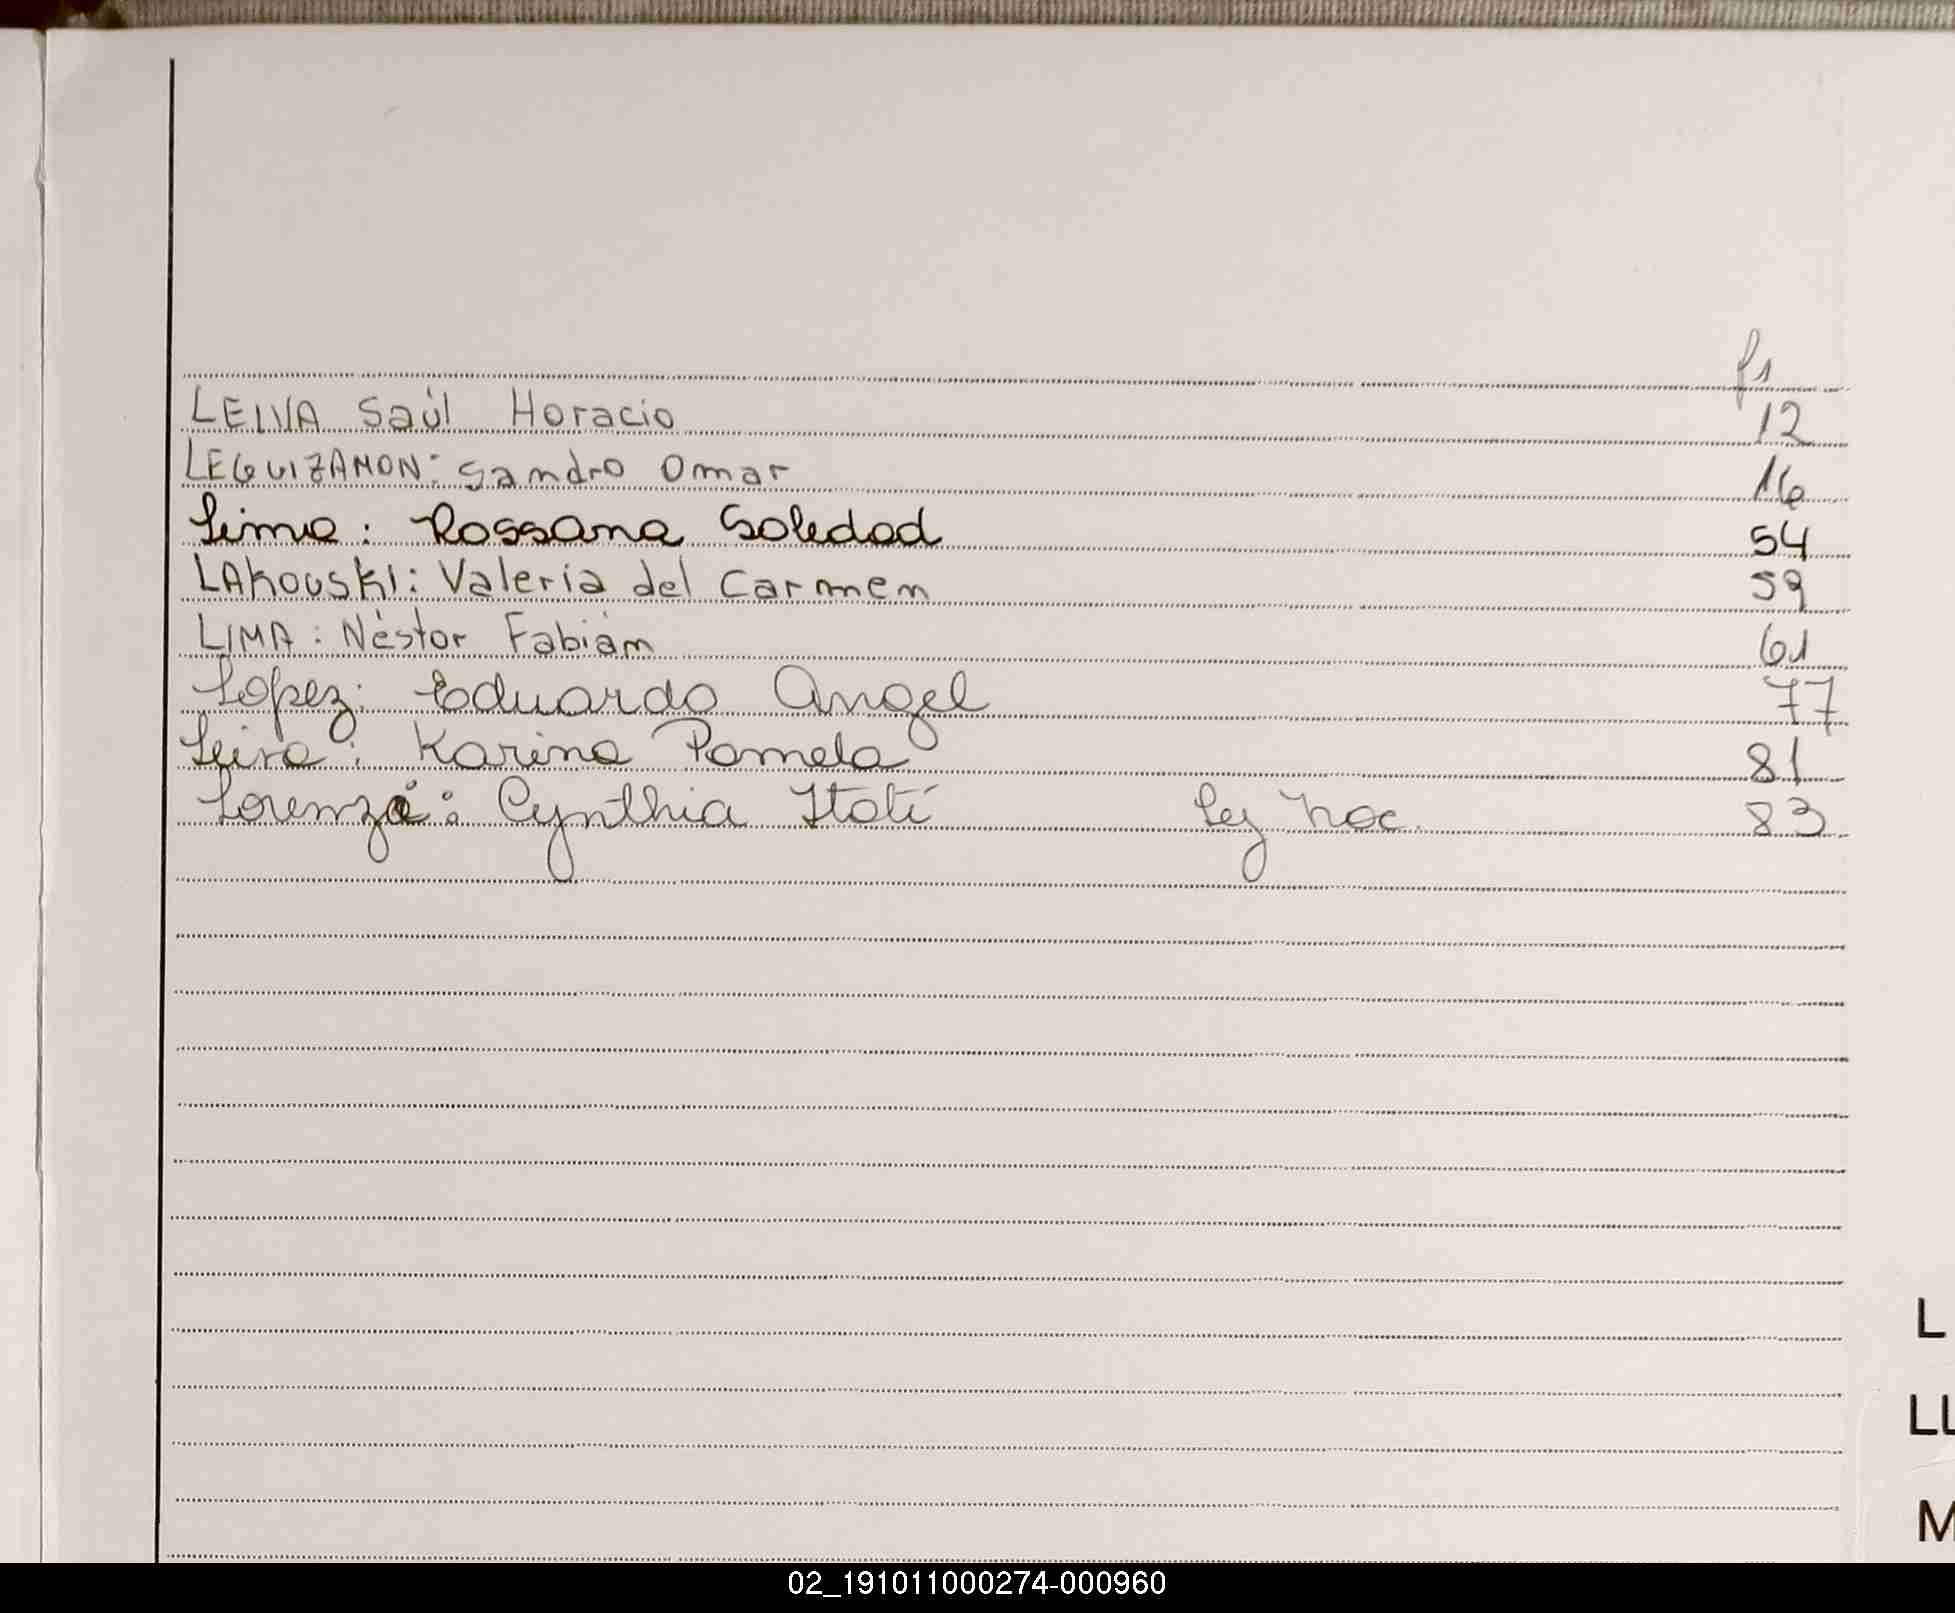 f1
LEIVA Saúl Horacio 12
LEGUIZAMON: Sandro Omar 16
Lima: Rossana Soledad 54
LAKOUSKI: Valeria del Carmen 59
LIMA: Néstor Fabián 61
Lopez: Eduardo Angel 77
Leiva: Karina Pamela 81
Lorenzo: Cynthia Itatí Ley Nac. 83
L
LL
M
02_191011000274-000960